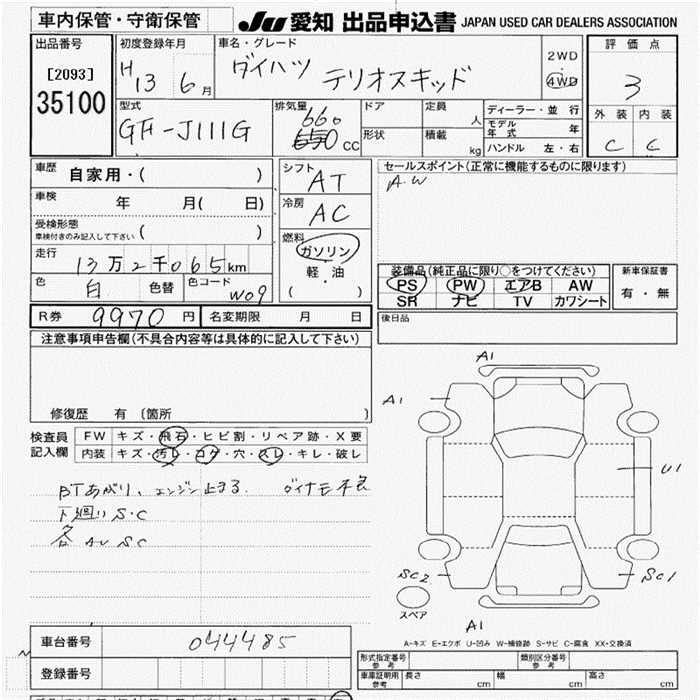 車内保管・守衛保管
JU 愛知 出品申込書 JAPAN USED CAR DEALERS ASSOCIATION
出品番号
[2093]
35100
初度登録年月
H 13 6月
車名・グレード
ダイハツ テリオスキッド
2WD
・
4WD
評価点
3
外装 内装
C C
型式
GF-J111G
排気量
660
650 cc
ドア
形状
定員 人
積載 kg
ディーラー・並行
モデル年式 年
ハンドル 左・右
車歴 自家用・( )
車検 年 月( 日)
受検形態
車検付きのみ記入して下さい ( )
走行
13万2千065km
色 白 色替 色コード W09
シフト
AT
冷房
AC
燃料
ガソリン
軽・油
( )
セールスポイント(正常に機能するものに限ります)
A.W
装備品(純正品に限り○をつけてください)
PS PW エアB AW
SR ナビ TV カワシート
新車保証書
有・無
R券 9970円 名変期限 月 日
後日品
注意事項申告欄(不具合内容等は具体的に記入して下さい)
修復歴 有 (箇所 )
検査員
記入欄
FW キズ・飛石・ヒビ割・リペア跡・X要
内装 キズ・汚レ・コゲ・穴・スレ・キレ・破レ
BTあがり、エンジン止まる ダイナモ不良
下廻りS・C
各 AU SC
A1
A1
U1
SC2
SC1
スペア
A1
A-キズ E-エクボ U-凹み W-補修跡 S-サビ C-腐食 XX-交換済
車台番号 044485
登録番号
形式指定番号
参考
類別区分番号
参考
車庫証明用
参考
長さ cm 幅 cm 高さ cm